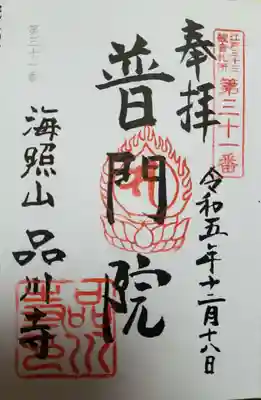 江戸三十三
観音札所
第三十一番
奉拝
令和五年十二月十八日
普門院
海照山 品川寺
第三十一番